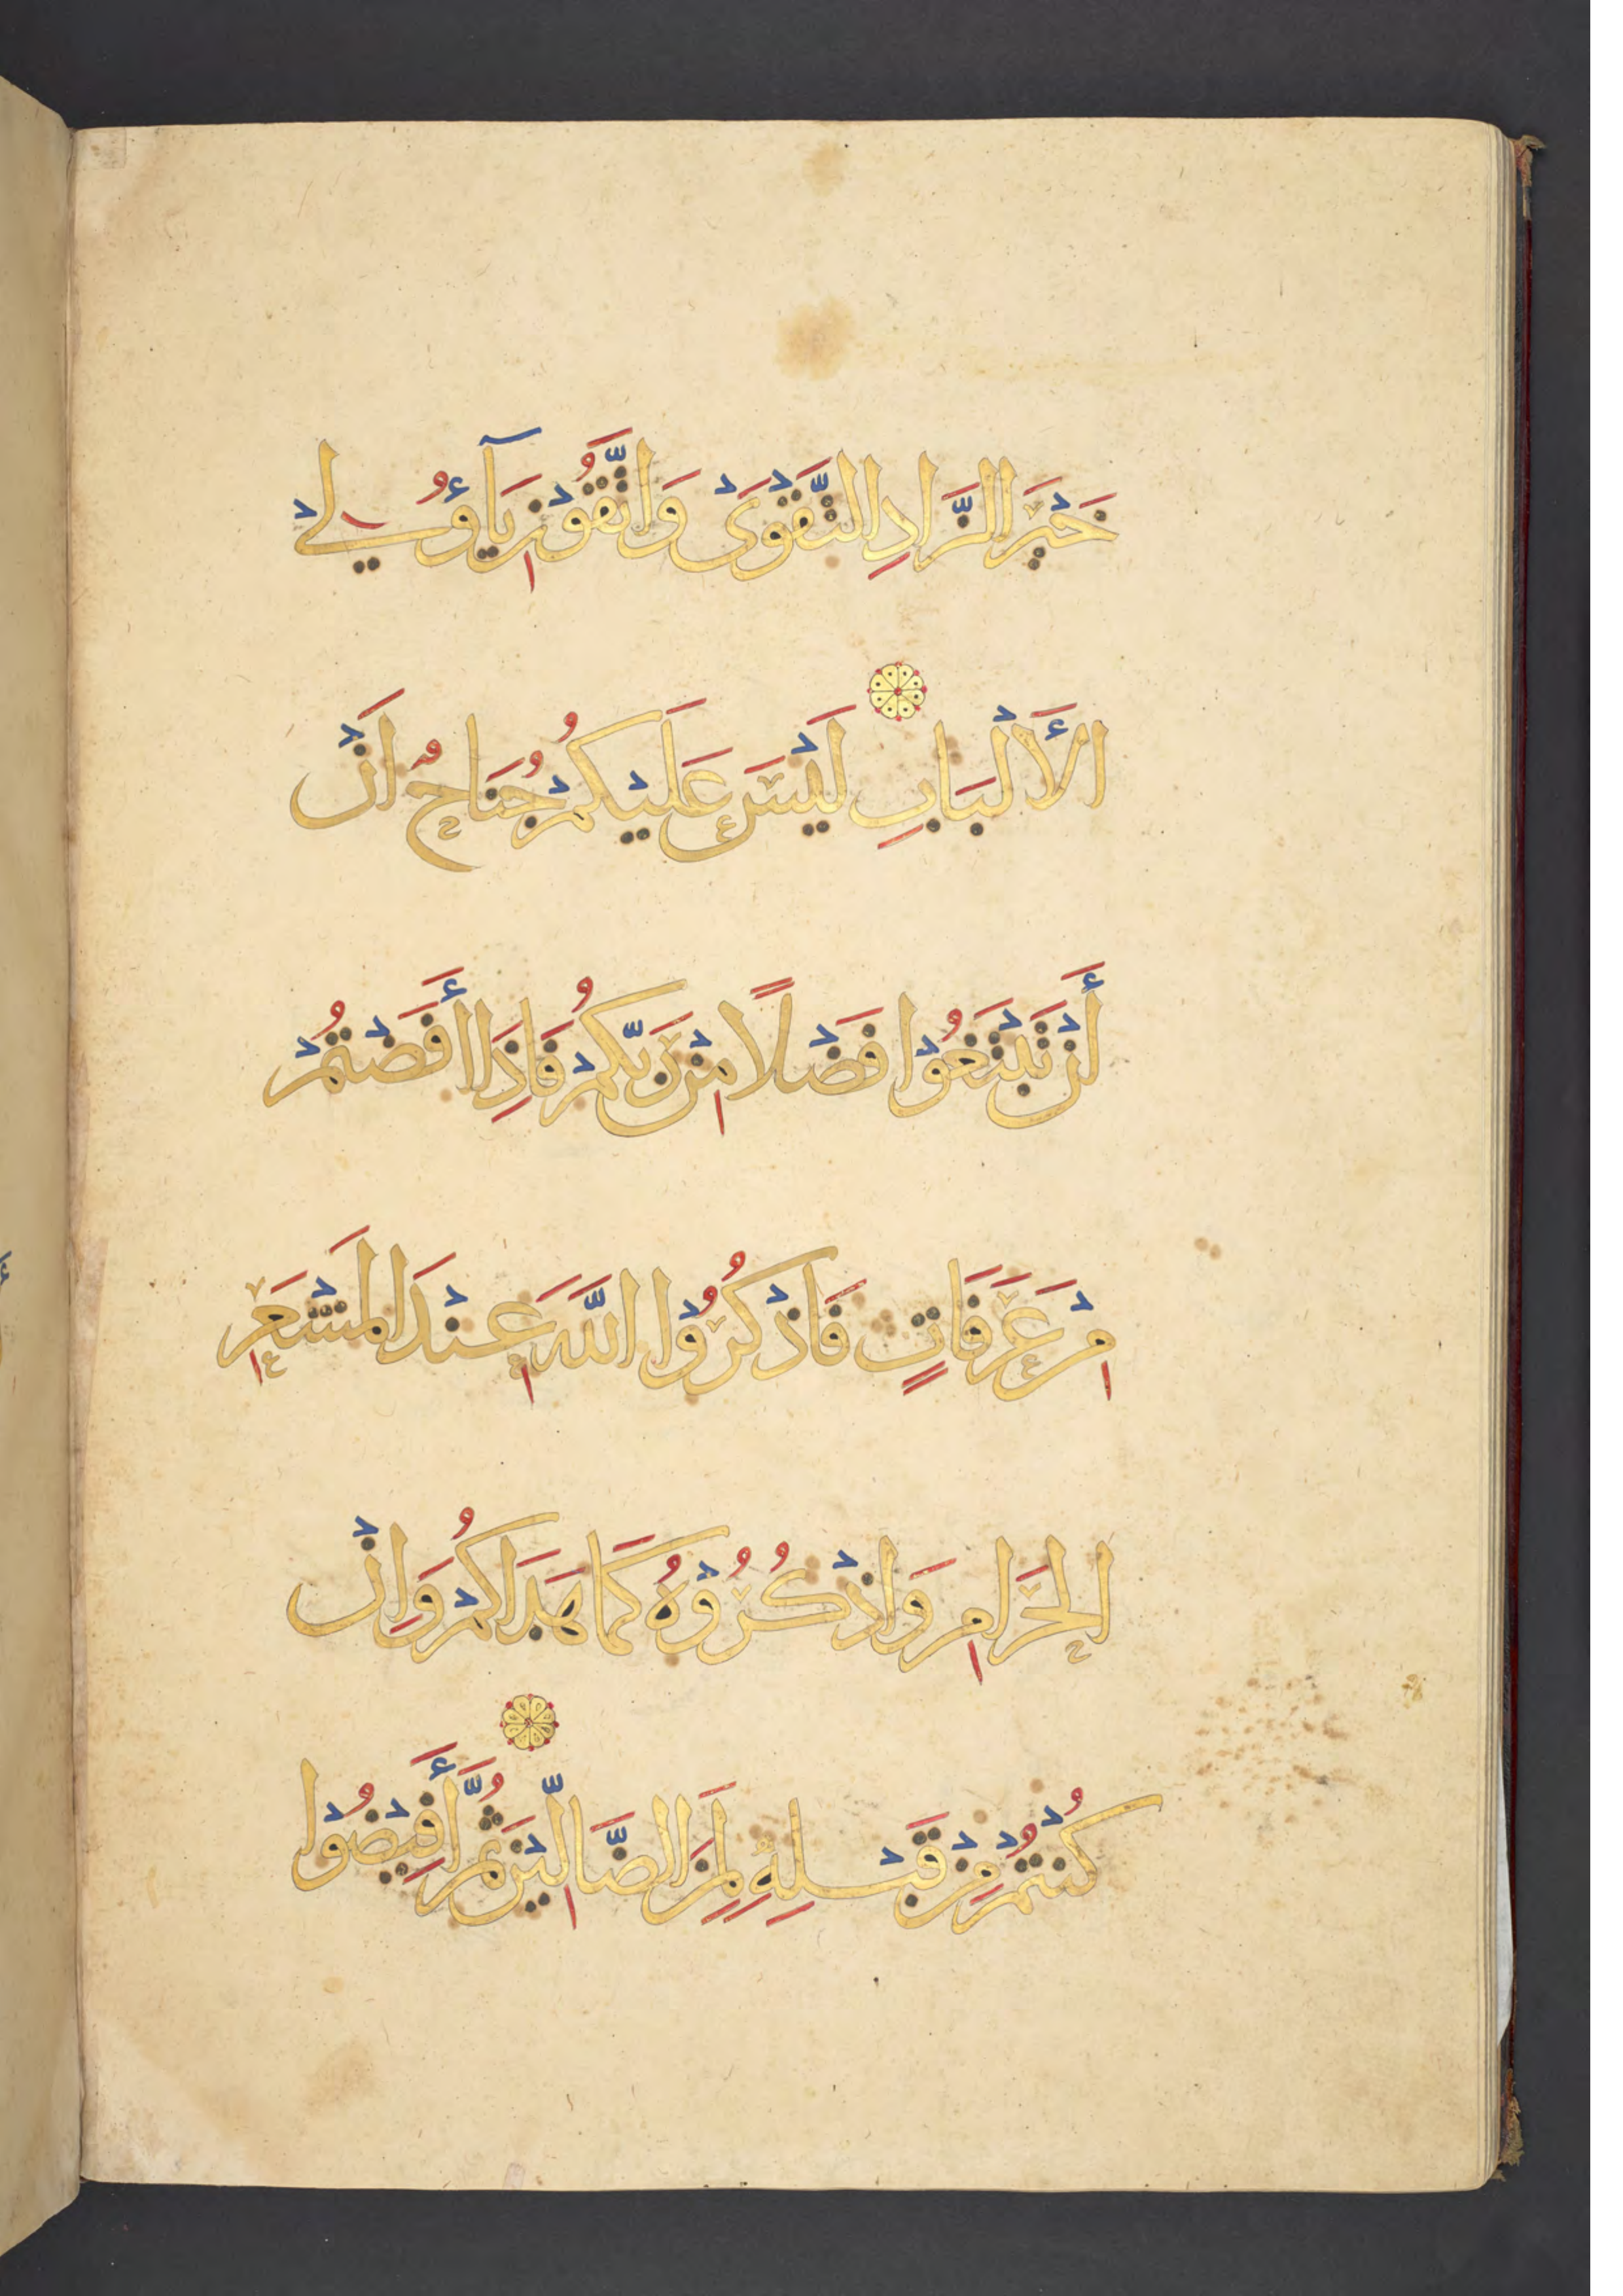 خَيْرَ الزَّادِ التَّقْوَىْ وَاتَّقُوْنِ يَآؤُلِيْ
الأَلْبَابِ لَيْسَ عَلَيْكُمْ جُنَاحٌ اَنْ
أَنْ تَبْتَغُوْا فَضْلًا مِنْ رَبِّكُمْ فَاِذَا أَفَضْتُمْ
مِنْ عَرَفَاتٍ فَاذْكُرُوْا اللَّهَ عِنْدَ الْمَشْعَرِ
الحَرَامِ وَاذْكُرُوْهُ كَمَا هَدَاكُمْ وَاِنْ
كُنْتُمْ مِنْ قَبْلِهِ لَمِنَ الضَّالِّيْنَ ثُمَّ أَفِيْضُوْا